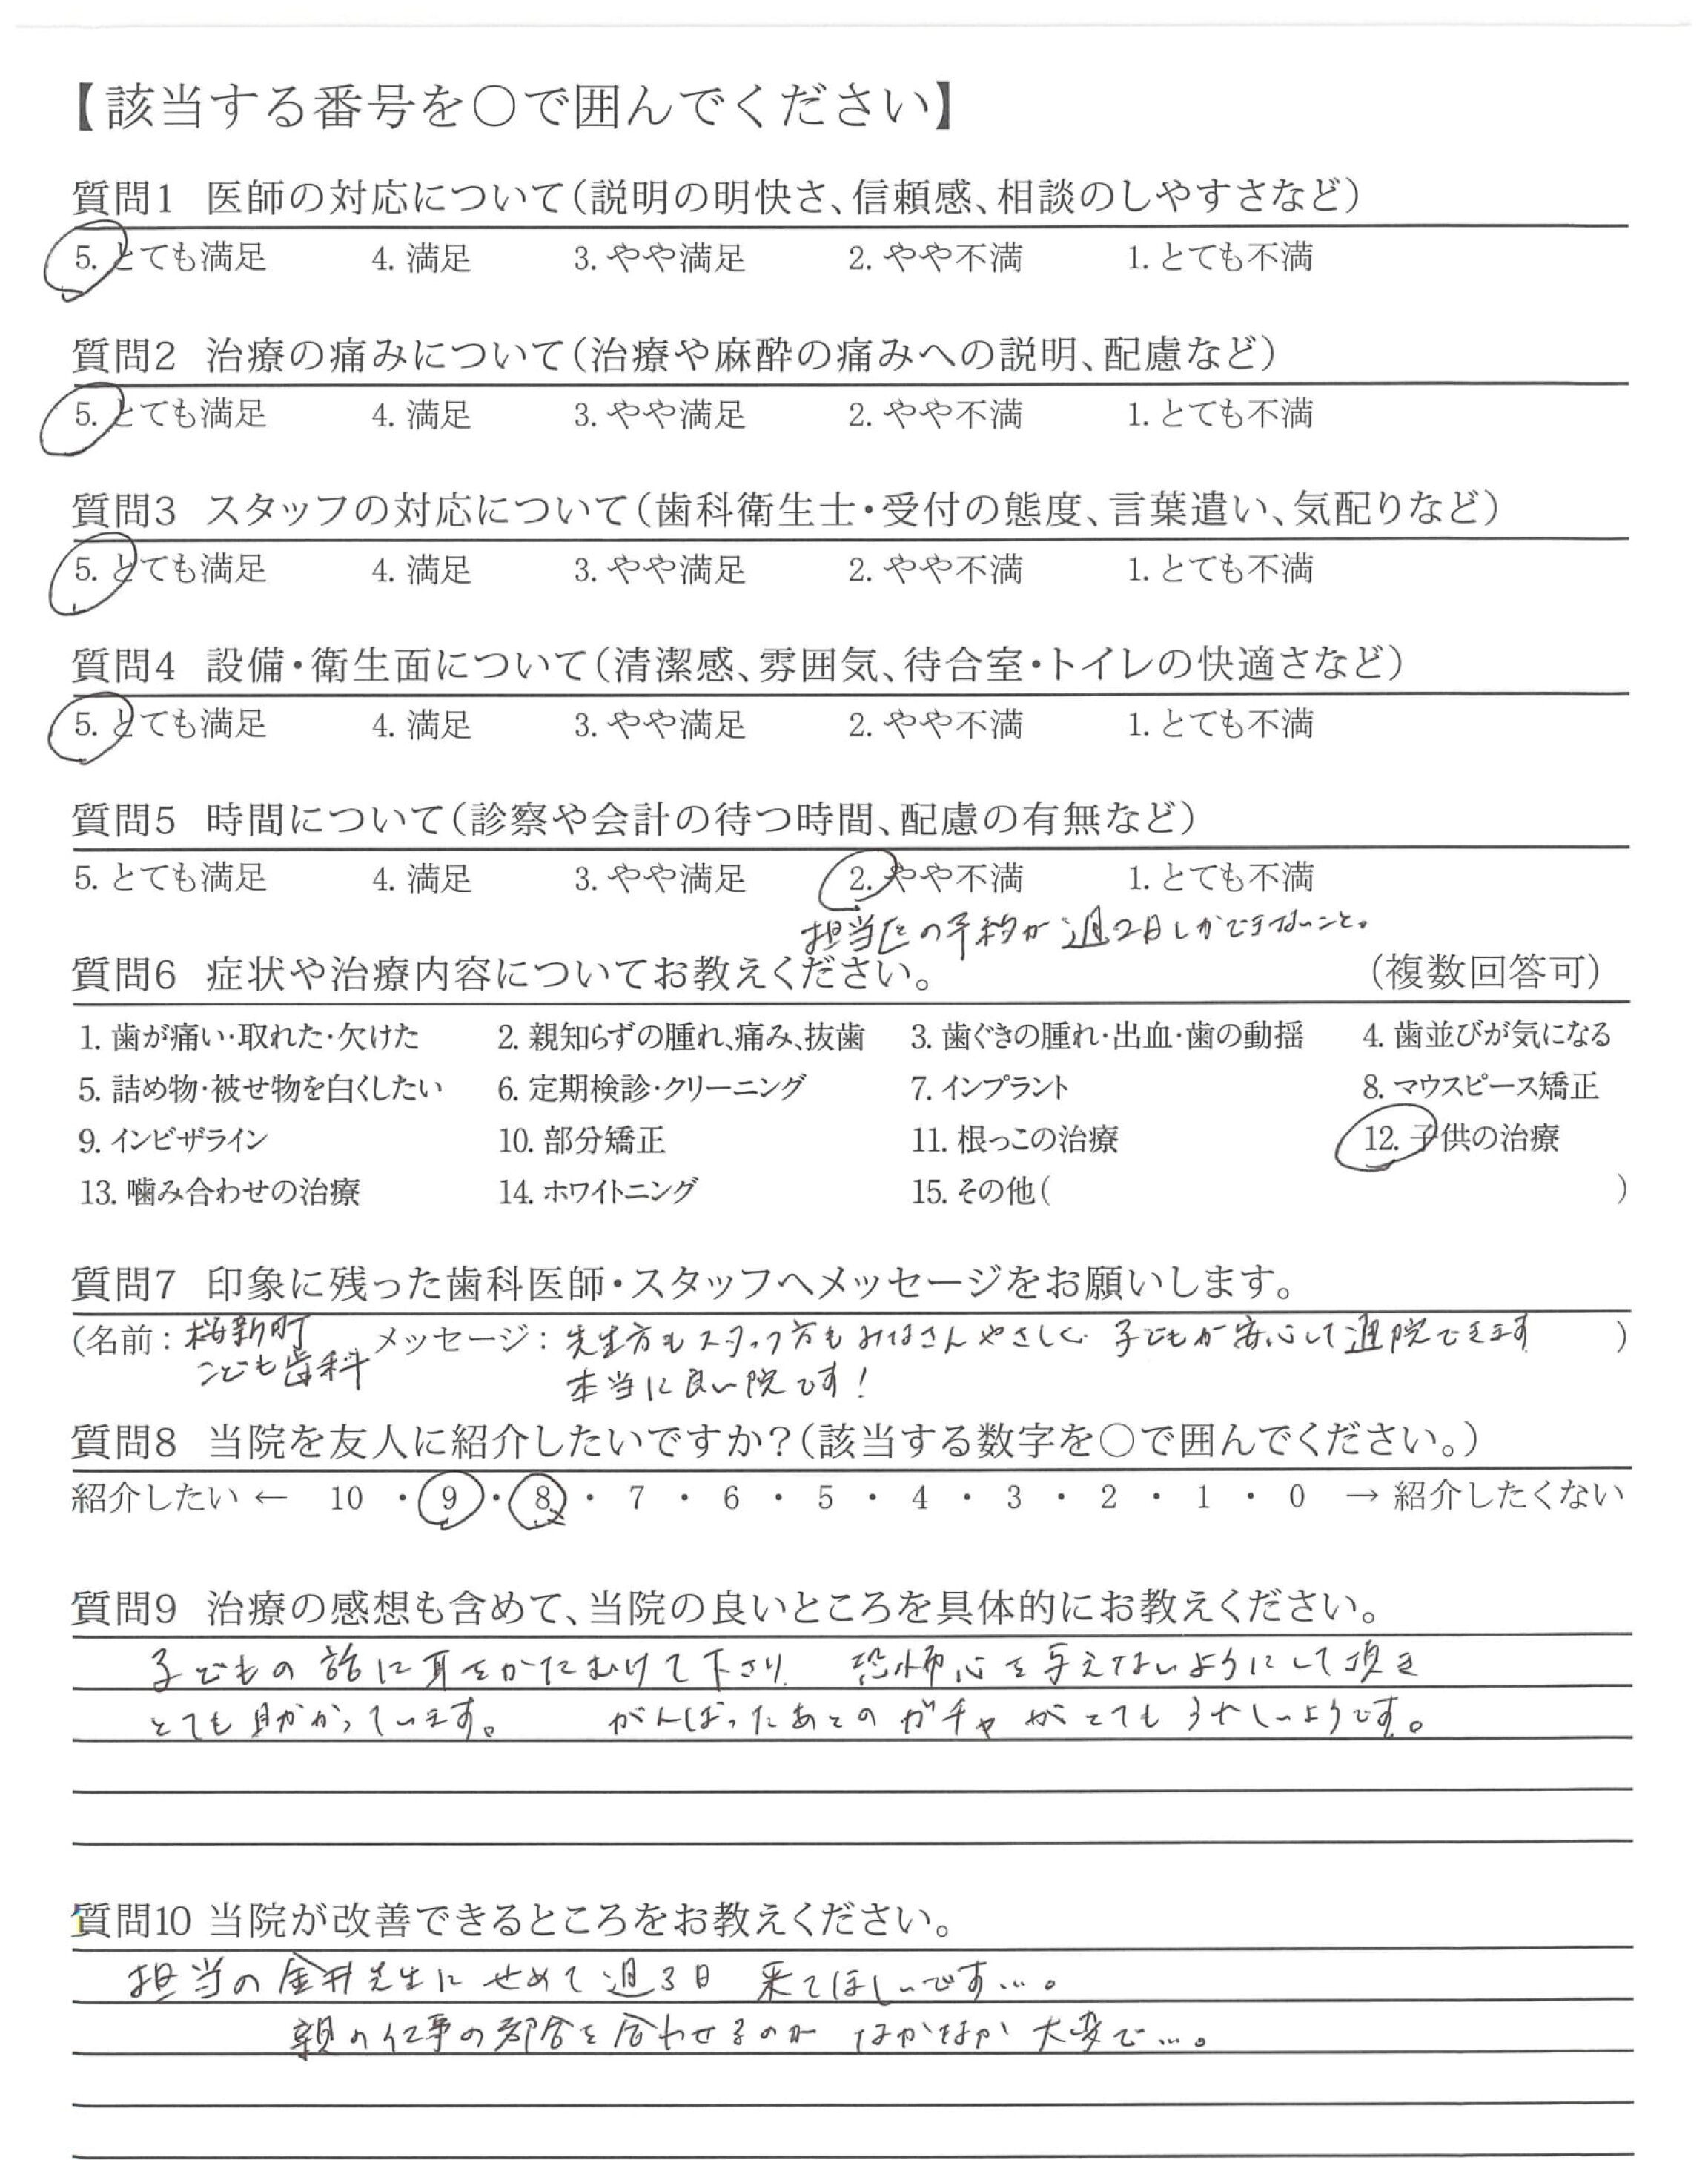 【該当する番号を○で囲んでください】
質問1 医師の対応について（説明の明快さ、信頼感、相談のしやすさなど）
5. とても満足 4. 満足 3. やや満足 2. やや不満 1. とても不満
質問2 治療の痛みについて（治療や麻酔の痛みへの説明、配慮など）
5. とても満足 4. 満足 3. やや満足 2. やや不満 1. とても不満
質問3 スタッフの対応について（歯科衛生士・受付の態度、言葉遣い、気配りなど）
5. とても満足 4. 満足 3. やや満足 2. やや不満 1. とても不満
質問4 設備・衛生面について（清潔感、雰囲気、待合室・トイレの快適さなど）
5. とても満足 4. 満足 3. やや満足 2. やや不満 1. とても不満
質問5 時間について（診察や会計の待つ時間、配慮の有無など）
5. とても満足 4. 満足 3. やや満足 2. やや不満 1. とても不満
担当医の予約が週2日しかできないこと。
質問6 症状や治療内容についてお教えください。 （複数回答可）
1. 歯が痛い・取れた・欠けた 2. 親知らずの腫れ、痛み、抜歯 3. 歯ぐきの腫れ・出血・歯の動揺 4. 歯並びが気になる
5. 詰め物・被せ物を白くしたい 6. 定期検診・クリーニング 7. インプラント 8. マウスピース矯正
9. インビザライン 10. 部分矯正 11. 根っこの治療 12. 子供の治療
13. 噛み合わせの治療 14. ホワイトニング 15. その他（ ）
質問7 印象に残った歯科医師・スタッフへメッセージをお願いします。
（名前：桜新町 メッセージ：先生方もスタッフ方もみなさんやさしく 子どもが安心して通院できます ）
こども歯科 本当に良い院です！
質問8 当院を友人に紹介したいですか？（該当する数字を○で囲んでください。）
紹介したい ← 10 ・ 9 ・ 8 ・ 7 ・ 6 ・ 5 ・ 4 ・ 3 ・ 2 ・ 1 ・ 0 → 紹介したくない
質問9 治療の感想も含めて、当院の良いところを具体的にお教えください。
子どもの話に耳をかたむけて下さり 恐怖心を与えないようにして頂き
とても助かっています。 がんばったあとのガチャがとてもうれしいようです。
質問10 当院が改善できるところをお教えください。
担当の金井先生にせめて週3日 来てほしいです…。
親の仕事の都合を合わせるのが なかなか大変で…。